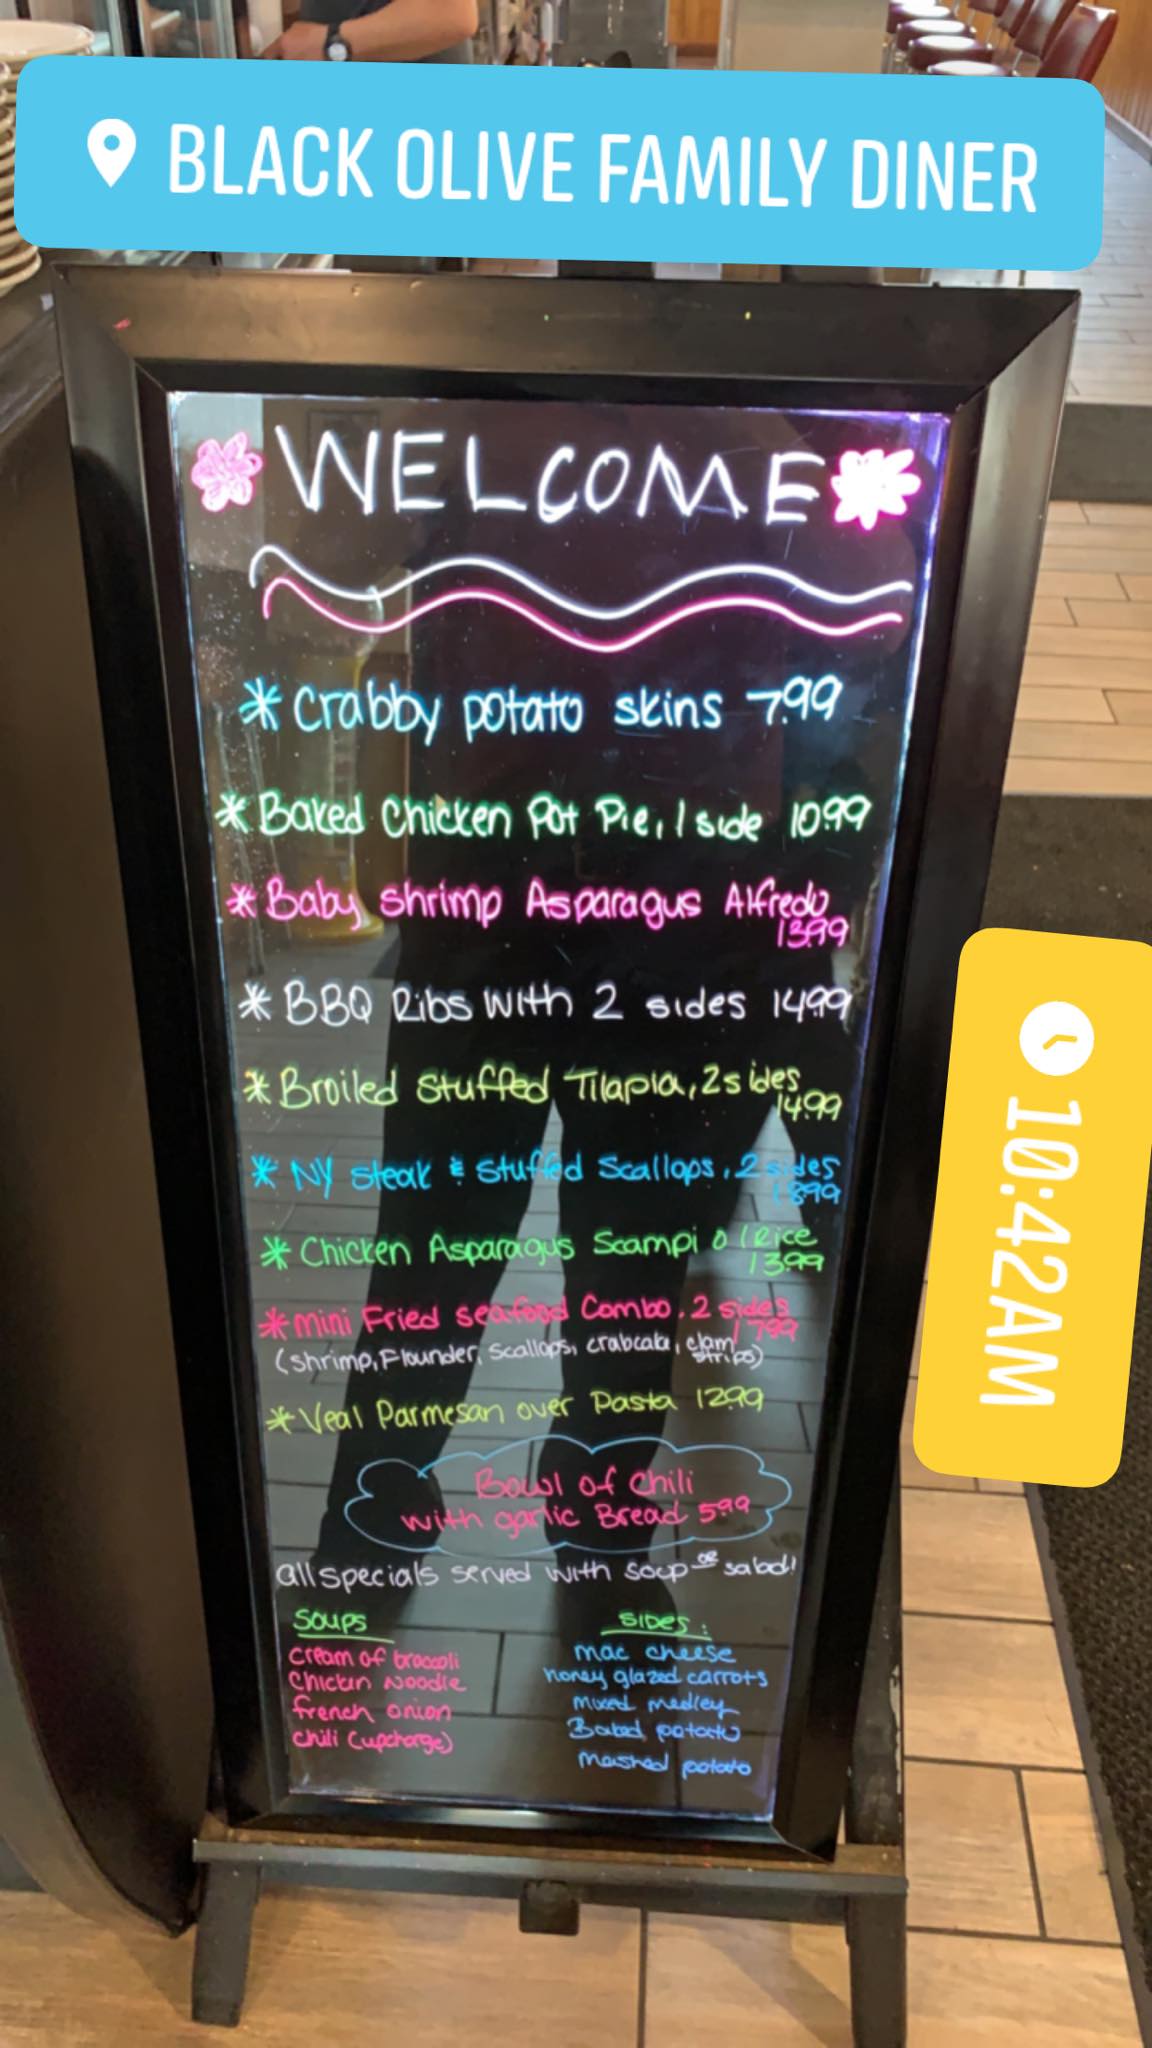 BLACK OLIVE FAMILY DINER
WELCOME
* Crabby potato skins 7.99
* Baked Chicken Pot Pie, 1 side 10.99
* Baby Shrimp Asparagus Alfredo
13.99
* BBQ Ribs With 2 sides 14.99
* Broiled Stuffed Tilapia, 2 sides
14.99
* NY Steak & Stuffed Scallops, 2 sides
18.99
* Chicken Asparagus Scampi o/Rice
13.99
* mini Fried seafood Combo, 2 sides
17.99
(Shrimp, Flounder, Scallops, crabcake, clam
strips)
* Veal Parmesan over Pasta 12.99
Bowl of Chili
with garlic Bread 5.99
all specials served with soup or salad!
Soups
cream of broccoli
Chicken Noodle
french onion
chili (upcharge)
SIDES:
mac cheese
honey glazed carrots
mixed medley
Baked potato
mashed potato
10:42AM